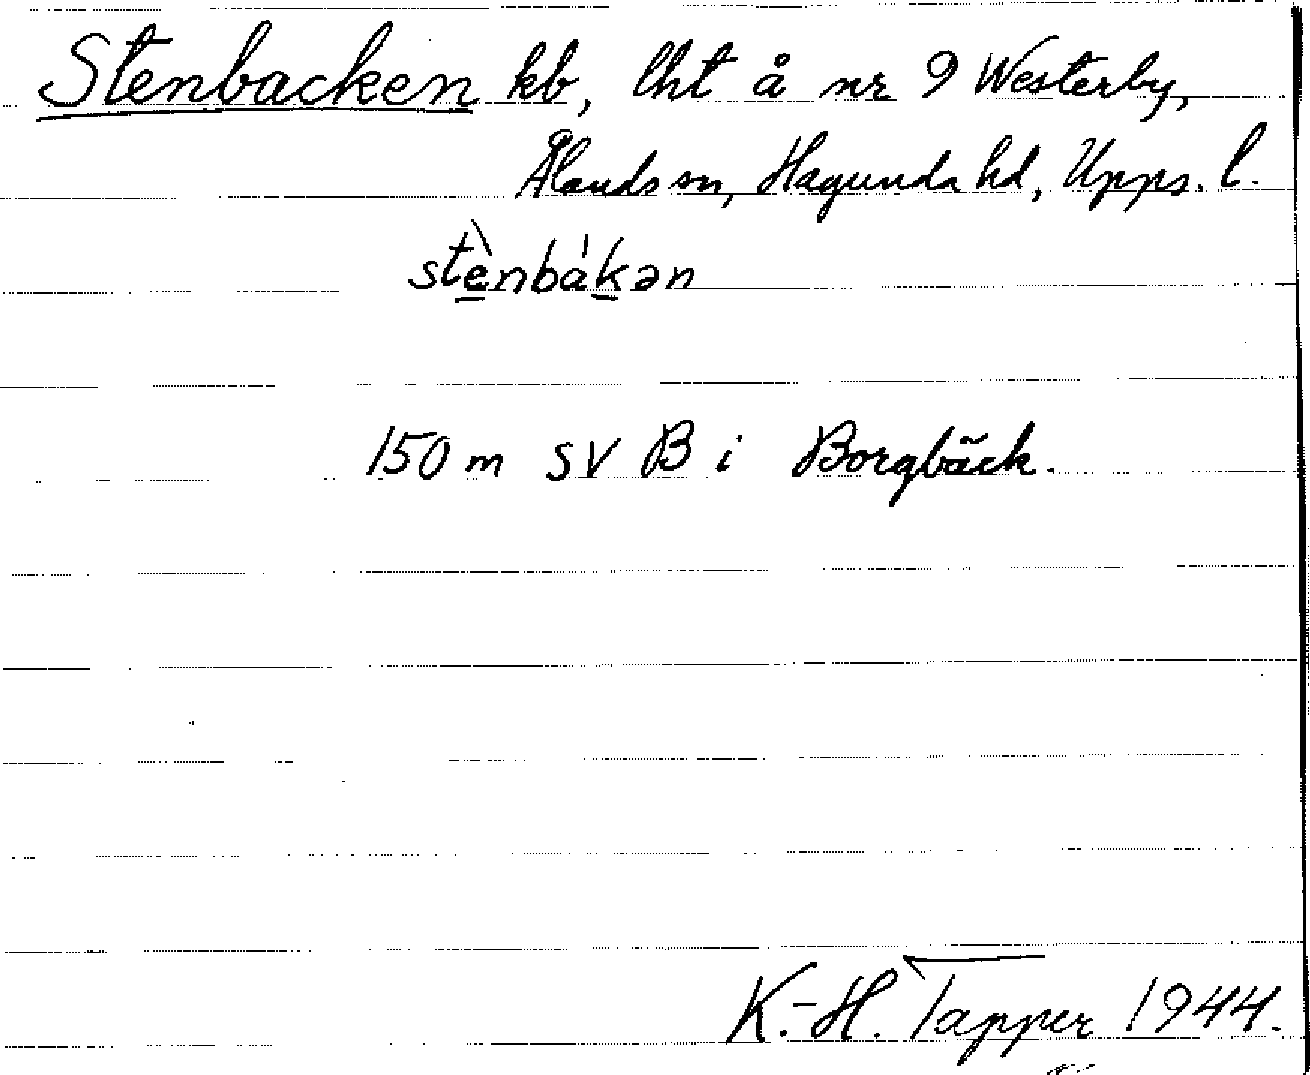 Stenbacken kb, lht å nr 9 Westerby,
Ålands sn, Hagunda hd, Upps. l.
stè̱nbáḵən
150 m SV B i Borgbäck.
K.-H. Tapper 1944.